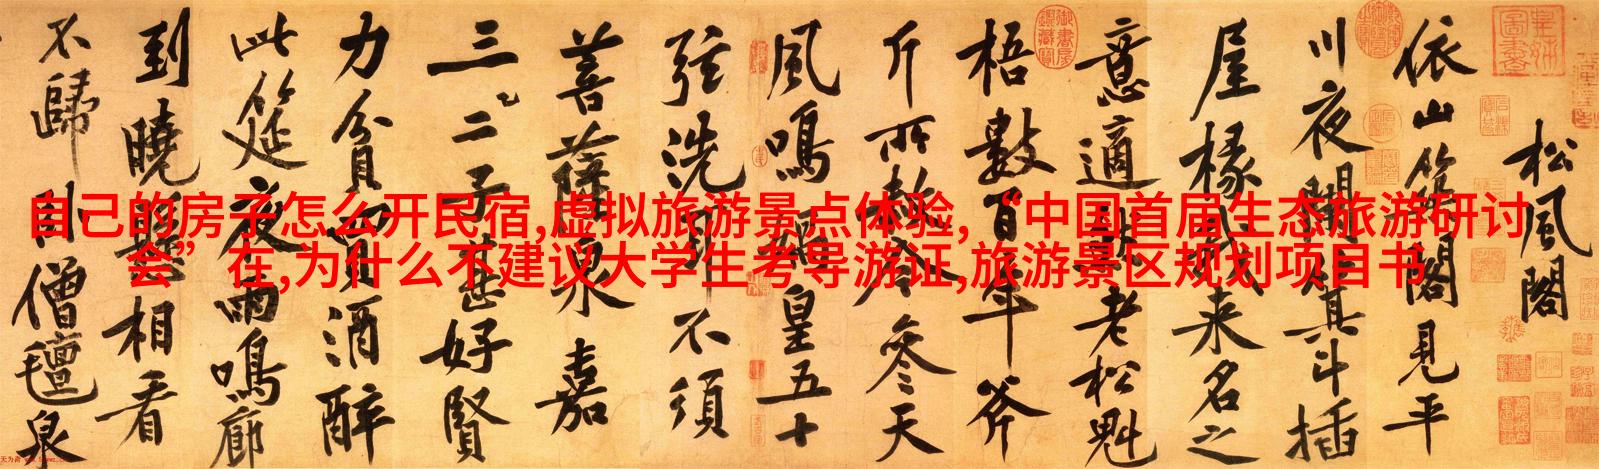 自己的房子怎么开民宿,虚拟旅游景点体验,“中国首届生态旅游研讨
会”在,为什么不建议大学生考导游证,旅游景区规划项目书
松風閣
依山築閣見平
川夜闌箕斗插
屋椽我来名之
意適然老松魁
梧數百年斧
斤所赦今參天
風鳴媧皇五十
弦洗耳不須
菩薩泉嘉
三二子甚好賢
力貧買酒醉
此筵夜雨鳴廊
到曉懸相看
不歸卧僧氈泉